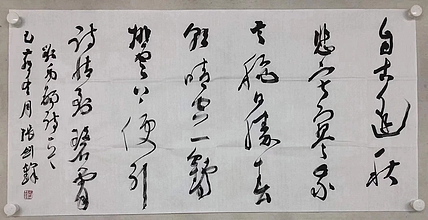 自古逢秋
悲寂寥我
言秋日胜春
朝晴空一鹤
排云上便引
诗情到碧霄
刘禹锡诗